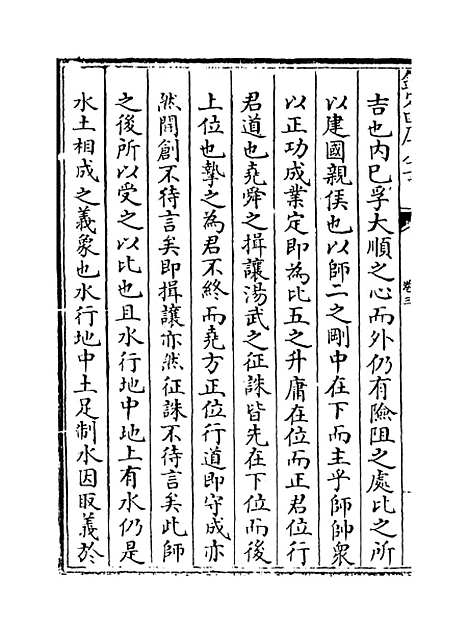 欽定四庫全書
卷三
吉也内已孚大順之心而外仍有險阻之處比之所
以建國親侯也以師二之剛中在下而主乎師帥衆
以正功成業定即為比五之升庸在位而正君位行
君道也堯舜之揖讓湯武之征誅皆先在下位而後
上位也摯之為君不終而堯方正位行道即守成亦
然開創不待言矣即揖讓亦然征誅不待言矣此師
之後所以受之以比也且水行地中地上有水仍是
水土相成之義象也水行地中土足制水因取義於